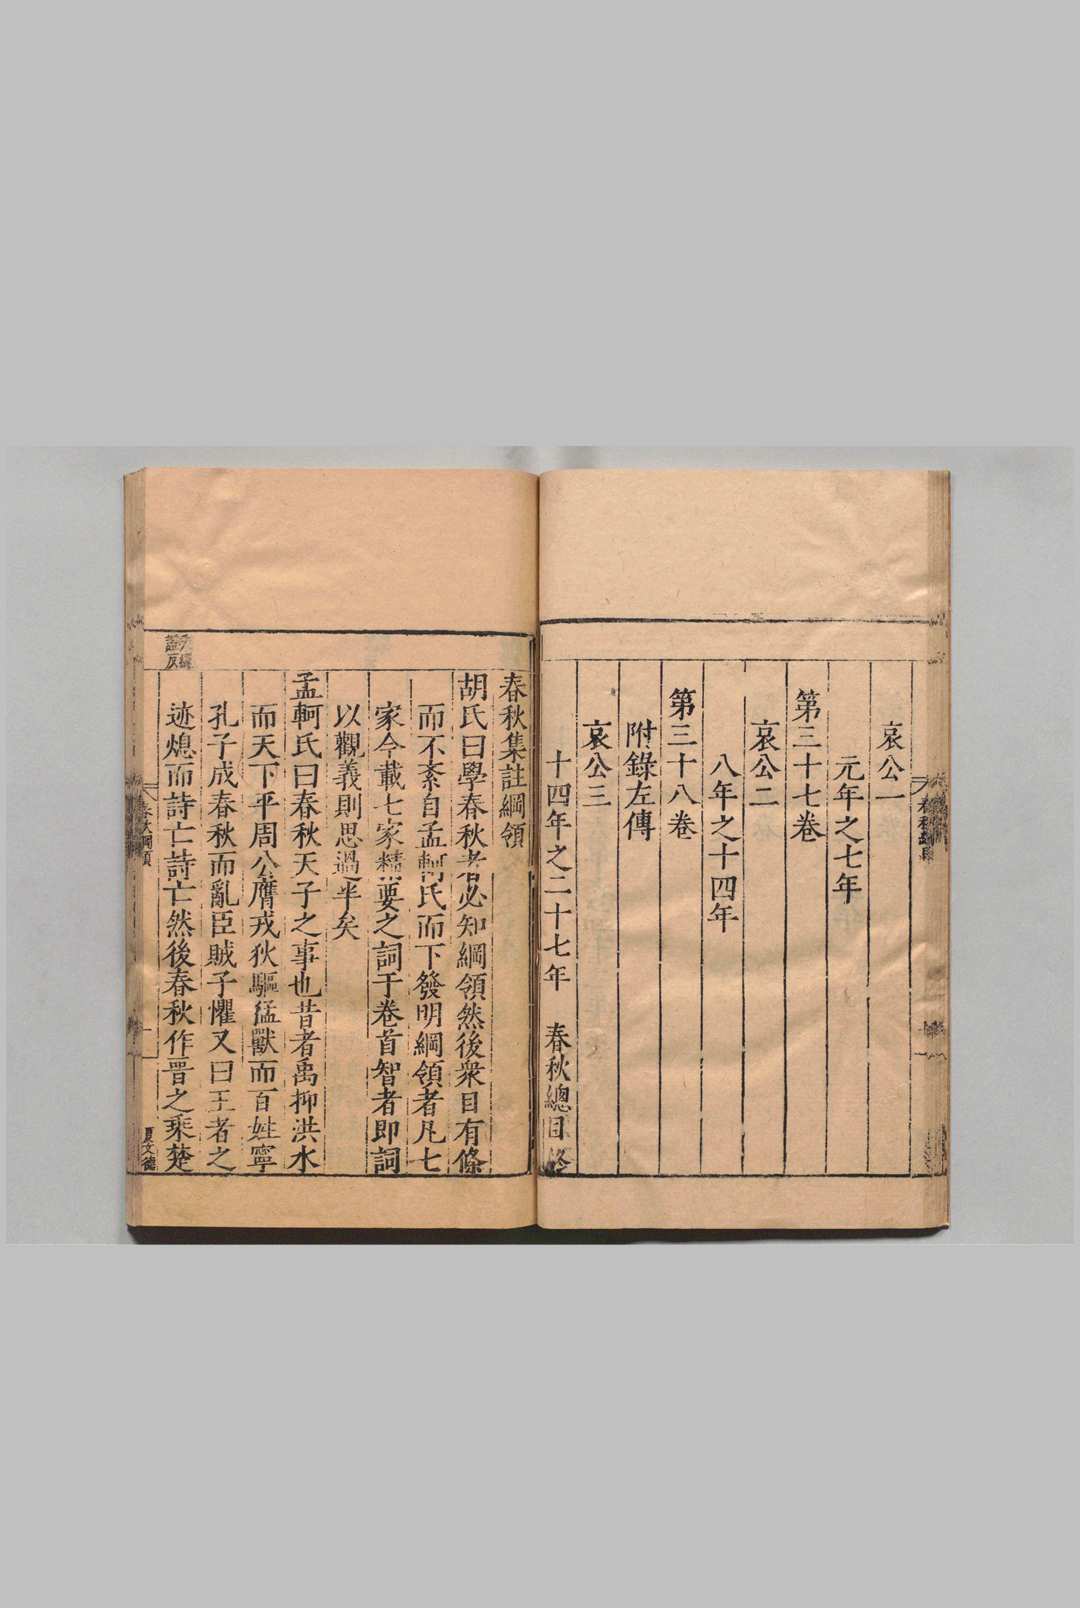 哀公一
元年之七年
第三十七卷
哀公二
八年之十四年
第三十八卷
附錄左傳
哀公三
十四年之二十七年　春秋總目終
春秋集註綱領
胡氏曰學春秋者必知綱領然後衆目有條
而不紊自孟軻氏而下發明綱領者凡七
家今載七家精要之詞于卷首智者即詞
以觀義則思過半矣
孟軻氏曰春秋天子之事也昔者禹抑洪水
而天下平周公膺戎狄驅猛獸而百姓寧
孔子成春秋而亂臣賊子懼又曰王者之
迹熄而詩亡詩亡然後春秋作晋之乘楚
春秋綱領
一
夏文德